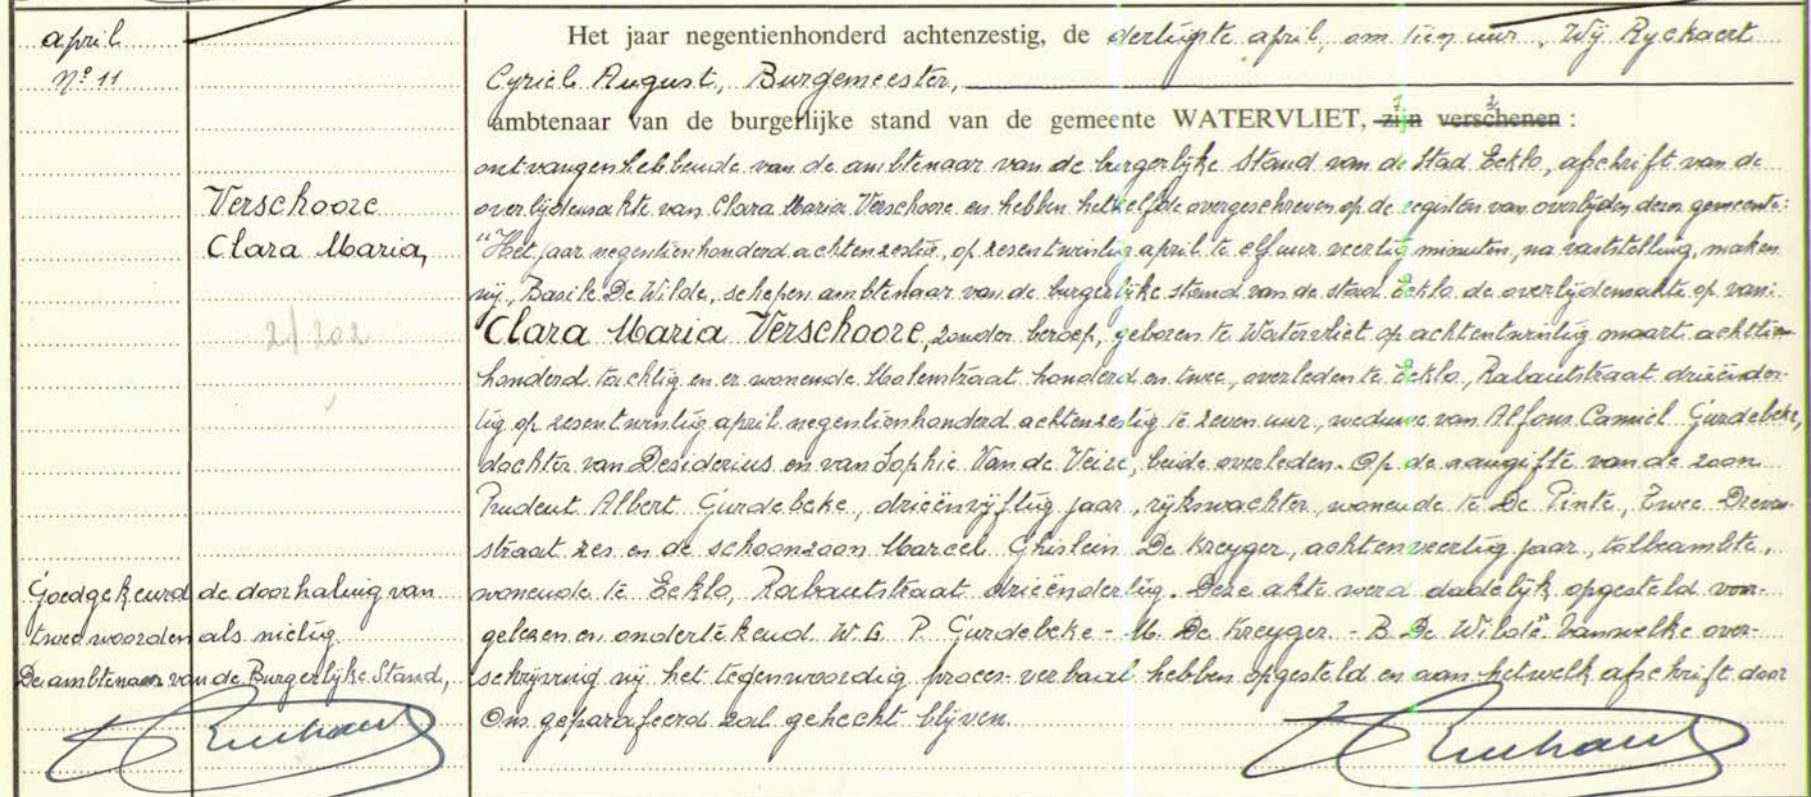 april
Nº 11
Verschoore
Clara Maria,
2/202
Goedgekeurd de doorhaling van
twee woorden als nietig.
De ambtenaar van de Burgerlijke Stand,
Het jaar negentienhonderd achtenzestig, de dertigste april, om tien uur, Wij Ryckaert
Cyriel August, Burgemeester,
ambtenaar van de burgerlijke stand van de gemeente WATERVLIET, zijn verschenen :
ontvangen hebbende van de ambtenaar van de burgerlijke Stand van de Stad Eeklo, afschrift van de
overlijdensakte van Clara Maria Verschoore en hebben hetzelfde overgeschreven op de registers van overlijden dezer gemeente:
"Het jaar negentienhonderd achtenzestig, op zesentwintig april te elf uur veertig minuten, na vaststelling, maken
wij, Basile De Wilde, schepen ambtenaar van de burgerlijke stand van de stad Eeklo de overlijdensakte op van:
Clara Maria Verschoore, zonder beroep, geboren te Watervliet op achtentwintig maart achttien-
honderd tachtig en er wonende Molenstraat honderd en twee, overleden te Eeklo, Rabautstraat drieënder-
tig op zesentwintig april negentienhonderd achtenzestig te zeven uur, weduwe van Alfons Camiel Gurdebeke,
dochter van Desiderius en van Sophie Van de Veire, beide overleden. Op de aangifte van de zoon
Prudent Albert Gurdebeke, drieënvijftig jaar, rijkswachter, wonende te De Pinte, Twee Dreven-
straat zes en de schoonzoon Marcel Ghislein De Kreyger, achtenveertig jaar, tolbeambte,
wonende te Eeklo, Rabautstraat drieëndertig. Deze akte werd dadelijk opgesteld voor-
gelezen en ondertekend W.G. P. Gurdebeke - M. De Kreyger. - B. De Wilde". Van welke over-
schrijving wij het tegenwoordig proces-verbaal hebben opgesteld en aan hetwelk afschrift door
Ons geparafeerd zal gehecht blijven.